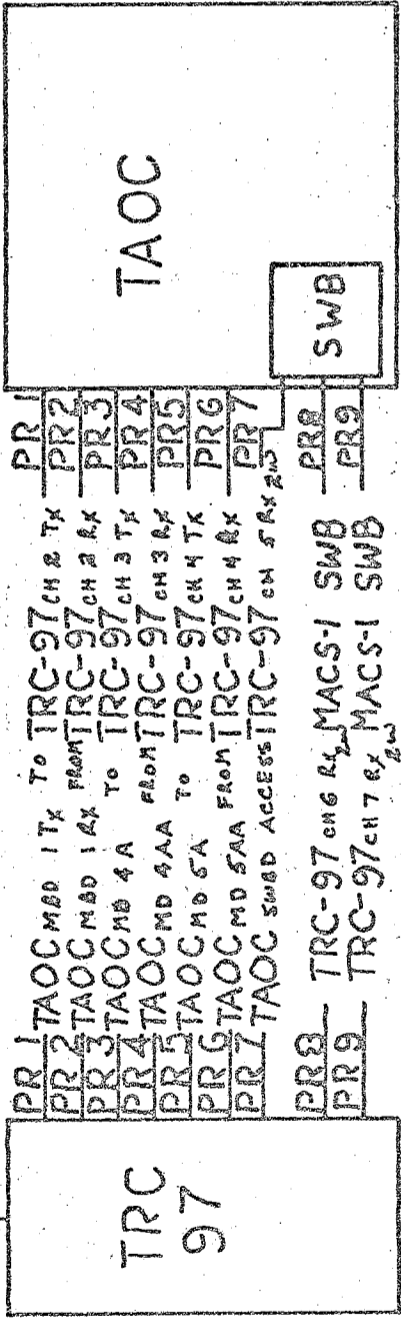 TRC
97
PR 1 TAOC MBD 1 TX TO TRC-97 CH 2 TX PR 1
PR2 TAOC MBD 1 RX FROM TRC-97 CH 2 RX PR2
PR3 TAOC MD 4A TO TRC-97 CH 3 TX PR3
PR4 TAOC MD 4AA FROM TRC-97 CH 3 RX PR4
PR5 TAOC MD 5A TO TRC-97 CH 4 TX PR5
PR6 TAOC MD 5AA FROM TRC-97 CH 4 RX PR6
PR7 TAOC SWBD ACCESS TRC-97 CH 5 RX 2W PR7
PR8 TRC-97 CH 6 RX 2W MACS-1 SWB PR8
PR9 TRC-97 CH 7 RX 2W MACS-1 SWB PR9
TAOC
SWB